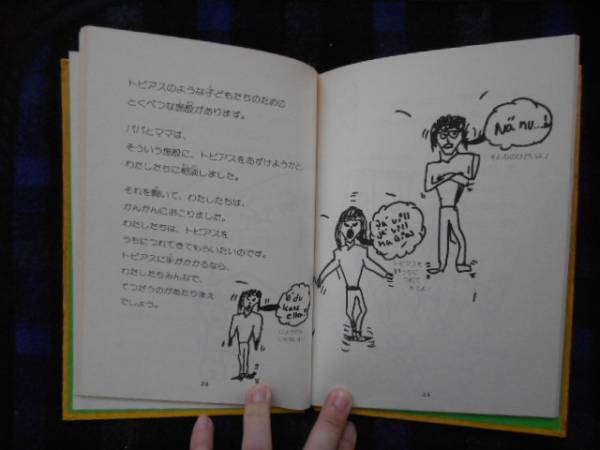 トビアスのような子どもたちのための
とくべつな施設があります。
パパとママは、
そういう施設に、トビアスをあずけようかと、
わたしたちに相談しました。
それを聞いて、わたしたちは、
かんかんにおこりました。
わたしたちは、トビアスを
うちにつれてきてもらいたいのです。
トビアスに手がかかるなら、
わたしたちみんなで、
てつだうのがあたりまえ
でしょう。
24
Nä nu...!
トビアスを
うちに
つれて
きてよ!
25